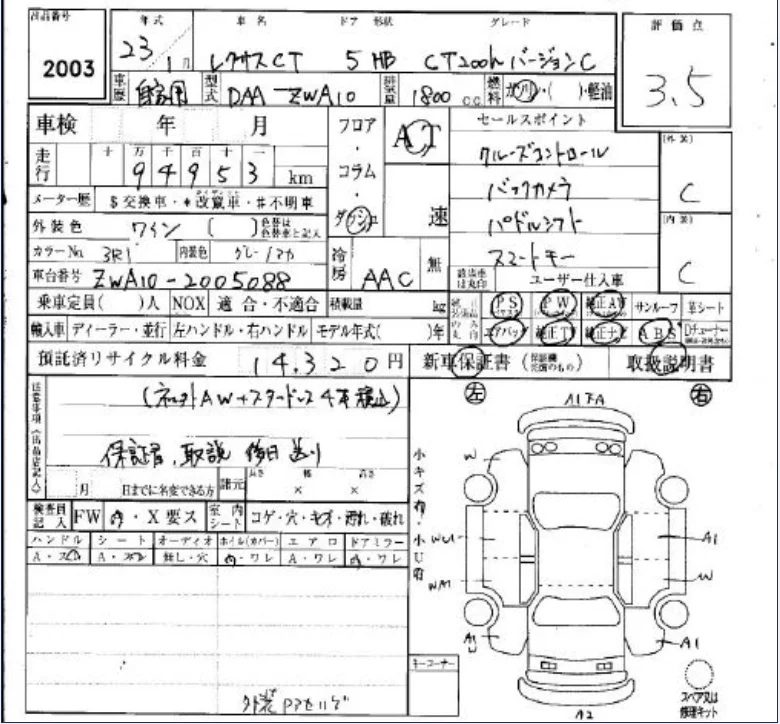 出品番号 年式 車名 ドア 形状 グレード 評価点
2003 23年 1月 レクサスCT 5 HB CT200h バージョンC 3.5
車歴 自家用 型式 DAA-ZWA10 排気量 1800 cc 燃料 ガソリン・( )・軽油
車検 年 月 フロア・コラム・ダッシュ AT 速 セールスポイント
走行 十万千百十一 94953 km クルーズコントロール (外装) C
メーター歴 $交換車・*改竄車・#不明車 バックカメラ
外装色 ワイン ( ) 色替は色替車と記入 パドルシフト (内装) C
カラーNo. 3R1 内装色 グレー 冷房 AAC 無 スマートキー
車台番号 ZWA10-2005088 該当車は丸印 ユーザー仕入車
乗車定員( )人 NOX 適合・不適合 積載量 kg PS PW 純正AW サンルーフ 革シート
輸入車 ディーラー・並行 左ハンドル・右ハンドル モデル年式( )年 エアバック 純正TV 純正ナビ ABS Dチューナー
預託済リサイクル料金 14,320円 新車保証書 取扱説明書
注意事項(出品店記入) (ネット AW+スタッドレス 4本積込) 左 右
A1 下A
保証書、取説 後日送り
月 日までに名変できる方 諸元 長さ × 幅 × 高さ 小キズ有・小U有
W
検査員記入 FW ・X要ス 室内シート コゲ・穴・キズ・汚れ・破れ
WU1 A1
ハンドル シート オーディオ ホイル(カバー) エアロ ドアミラー
A・スレ A・スレ 無し・穴 ・ワレ A・ワレ ・ワレ
W
A1 W A1
キーコーナー
外装
A2
スペア又は修理キット